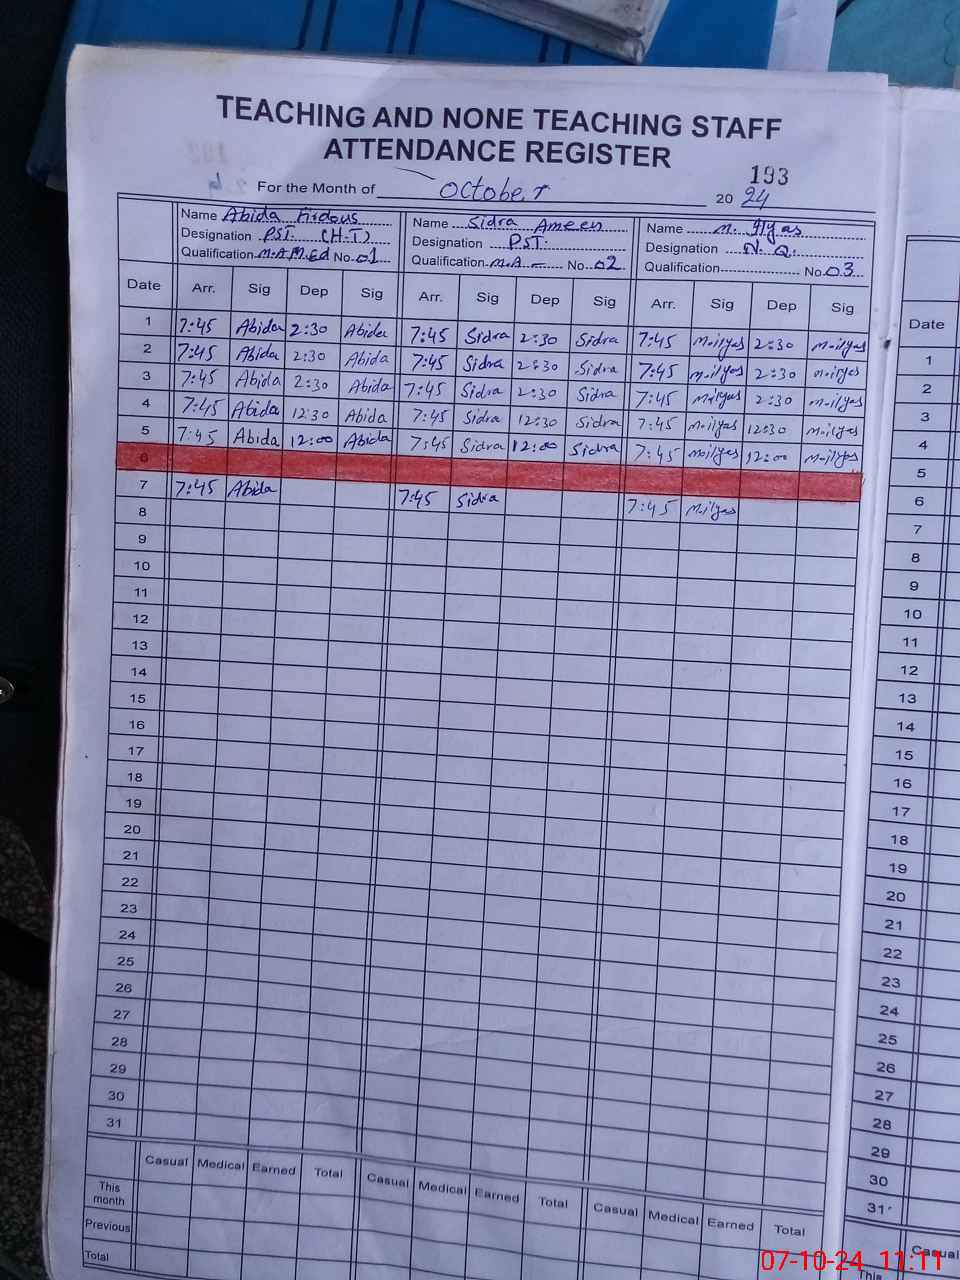 TEACHING AND NONE TEACHING STAFF
ATTENDANCE REGISTER
193
For the Month of October 20 24
Name Abida Firdous Name Sidra Ameen Name M. Ilyas
Designation PST. (H.T) Designation PST. Designation N.Q.
Qualification M.A M.Ed No. 01 Qualification M.A - No. 02 Qualification No. 03
Date Arr. Sig Dep Sig Arr. Sig Dep Sig Arr. Sig Dep Sig Date
1 7:45 Abida 2:30 Abida 7:45 Sidra 2:30 Sidra 7:45 M.ilyas 2:30 M.ilyas 1
2 7:45 Abida 2:30 Abida 7:45 Sidra 2:30 Sidra 7:45 M.ilyas 2:30 M.ilyas 2
3 7:45 Abida 2:30 Abida 7:45 Sidra 2:30 Sidra 7:45 M.ilyas 2:30 M.ilyas 3
4 7:45 Abida 12:30 Abida 7:45 Sidra 12:30 Sidra 7:45 M.ilyas 12:30 M.ilyas 4
5 7:45 Abida 12:00 Abida 7:45 Sidra 12:00 Sidra 7:45 M.ilyas 12:00 M.ilyas 5
6 6
7 7:45 Abida 7:45 Sidra 7:45 M.ilyas 7
8 8
9 9
10 10
11 11
12 12
13 13
14 14
15 15
16 16
17 17
18 18
19 19
20 20
21 21
22 22
23 23
24 24
25 25
26 26
27 27
28 28
29 29
30 30
31 31
Casual Medical Earned Total Casual Medical Earned Total Casual Medical Earned Total Casual
This month This
Previous
Total
07-10-24 11:11